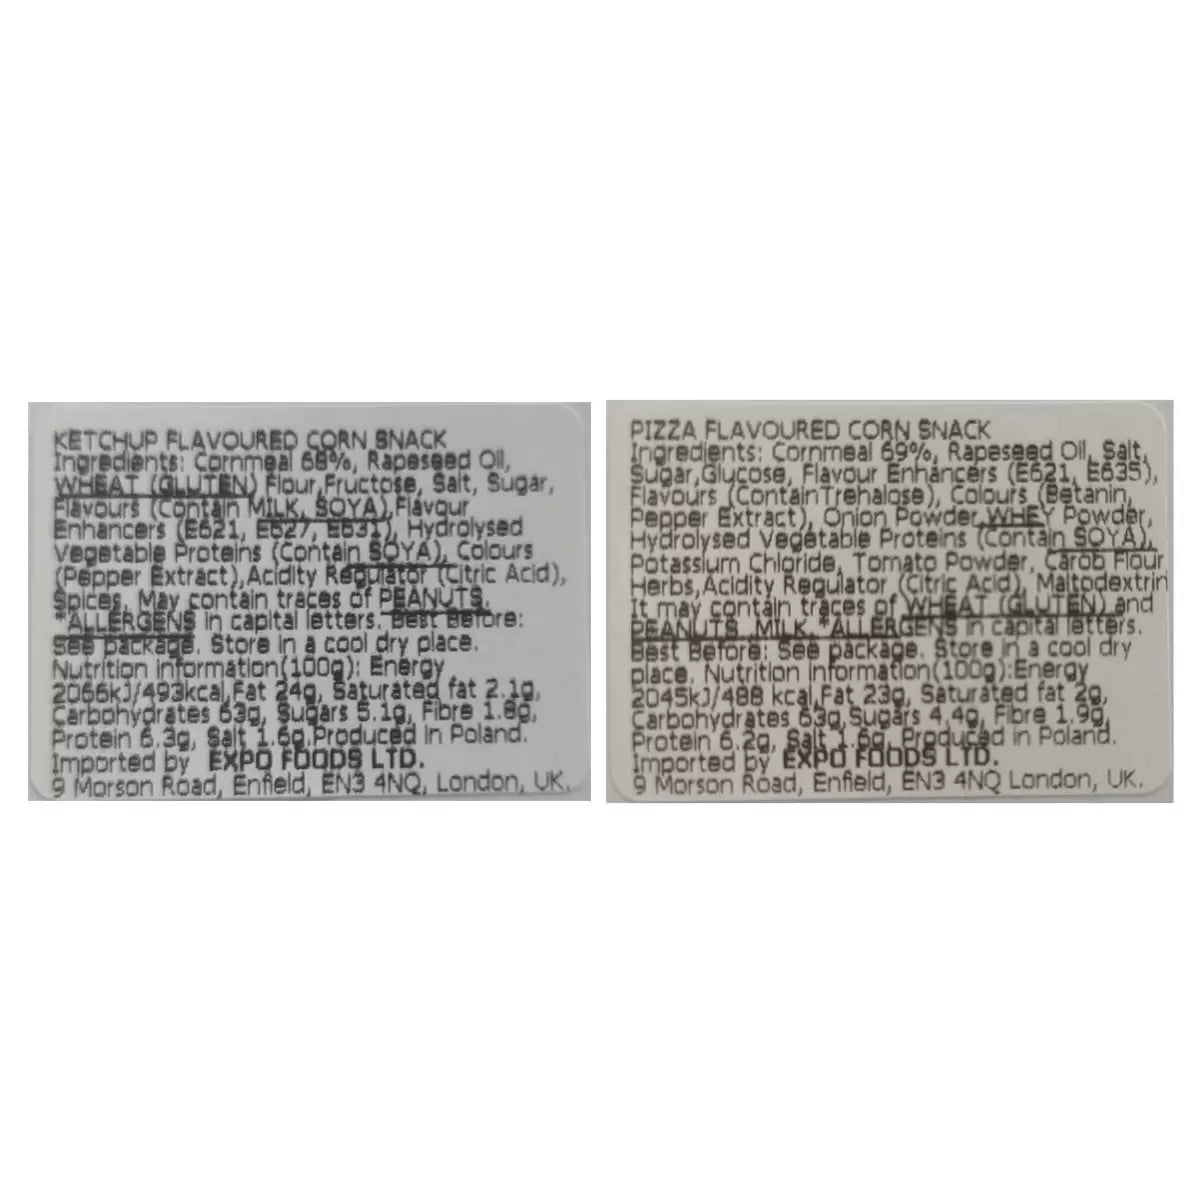 KETCHUP FLAVOURED CORN SNACK
Ingredients: Cornmeal 68%, Rapeseed Oil,
WHEAT (GLUTEN) Flour,Fructose, Salt, Sugar,
Flavours (Contain MILK, SOYA),Flavour
Enhancers (E621, E627, E631), Hydrolysed
Vegetable Proteins (Contain SOYA), Colours
(Pepper Extract),Acidity Regulator (Citric Acid),
Spices. May contain traces of PEANUTS.
*ALLERGENS in capital letters. Best Before:
See package. Store in a cool dry place.
Nutrition information(100g): Energy
2066kJ/493kcal,Fat 24g, Saturated fat 2.1g,
Carbohydrates 63g, Sugars 5.1g, Fibre 1.8g,
Protein 6.3g, Salt 1.6g.Produced in Poland.
Imported by EXPO FOODS LTD.
9 Morson Road, Enfield, EN3 4NQ, London, UK.
PIZZA FLAVOURED CORN SNACK
Ingredients: Cornmeal 69%, Rapeseed Oil, Salt,
Sugar,Glucose, Flavour Enhancers (E621, E635),
Flavours (ContainTrehalose), Colours (Betanin,
Pepper Extract), Onion Powder,WHEY Powder,
Hydrolysed Vegetable Proteins (Contain SOYA),
Potassium Chloride, Tomato Powder, Carob Flour,
Herbs,Acidity Regulator (Citric Acid), Maltodextrin
It may contain traces of WHEAT (GLUTEN) and
PEANUTS, MILK. *ALLERGENS in capital letters.
Best Before: See package. Store in a cool dry
place. Nutrition information(100g):Energy
2045kJ/488 kcal,Fat 23g, Saturated fat 2g,
Carbohydrates 63g,Sugars 4.4g, Fibre 1.9g,
Protein 6.2g, Salt 1.6g. Produced in Poland.
Imported by EXPO FOODS LTD.
9 Morson Road, Enfield, EN3 4NQ London, UK.